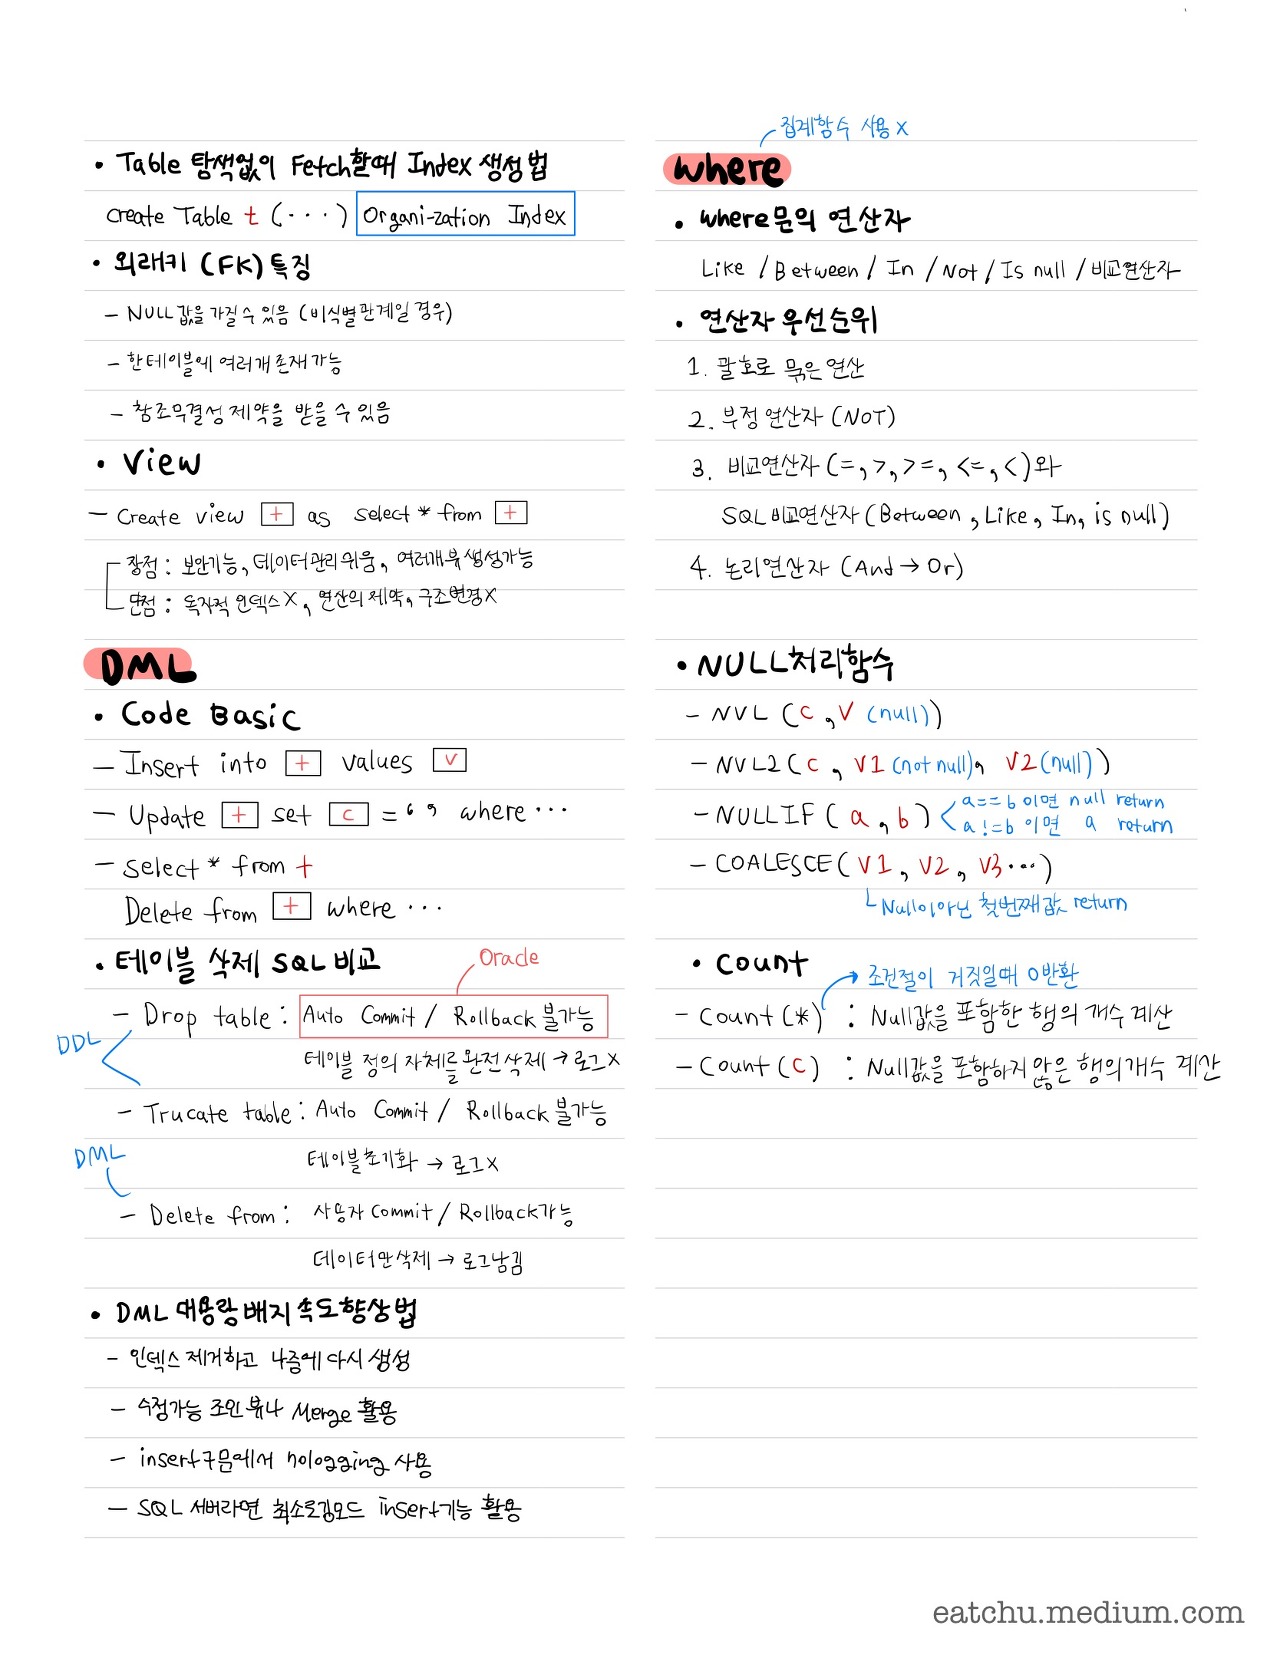 • Table 탐색없이 Fetch할때 Index 생성법
Create Table t (···) Organi-zation Index
• 외래키 (FK) 특징
- NULL값을 가질 수 있음 (비식별관계일 경우)
- 한 테이블에 여러개 존재 가능
- 참조무결성 제약을 받을 수 있음
• View
- Create view t as select * from t
장점 : 보안기능, 데이터관리 쉬움, 여러개 뷰 생성가능
단점 : 독자적 인덱스 X, 연산의 제약, 구조변경 X
DML
• Code Basic
- Insert into t values v
- Update t set c = ‘ , where ···
- Select * from t
Delete from t where ···
• 테이블 삭제 SQL 비교
Oracle
DDL
- Drop table : Auto Commit / Rollback 불가능
테이블 정의 자체를 완전삭제 → 로그 X
- Trucate table : Auto Commit / Rollback 불가능
테이블초기화 → 로그 X
DML
- Delete from : 사용자 Commit / Rollback 가능
데이터만 삭제 → 로그남김
• DML 대용량 배지 속도향상법
- 인덱스 제거하고 나중에 다시 생성
- 수정가능 조인 뷰나 Merge 활용
- insert구문에서 nologging 사용
- SQL 서버라면 최소로깅모드 insert기능 활용
집계함수 사용 X
where
• where문의 연산자
Like / Between / In / Not / Is null / 비교연산자
• 연산자 우선순위
1. 괄호로 묶은 연산
2. 부정 연산자 (NOT)
3. 비교연산자 (=, >, >=, <=, <) 와
SQL 비교연산자 (Between, Like, In, is null)
4. 논리연산자 (And → Or)
• NULL처리함수
- NVL (c, V (null))
- NVL2 (c, V1 (not null), V2 (null))
- NULLIF (a, b)
a==b 이면 null return
a!=b 이면 a return
- COALESCE (V1, V2, V3 ···)
Null이아닌 첫번째값 return
• Count
조건절이 거짓일때 0반환
- Count (*) : Null값을 포함한 행의 개수 계산
- Count (c) : Null값을 포함하지 않은 행의 개수 계산
eatchu.medium.com